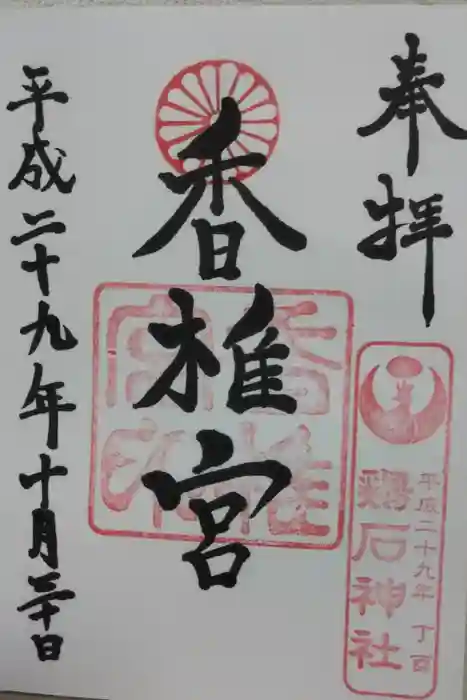 奉拝
香椎宮
香椎宮印
平成二十九年丁酉
鶏石神社
平成二十九年十月三十日